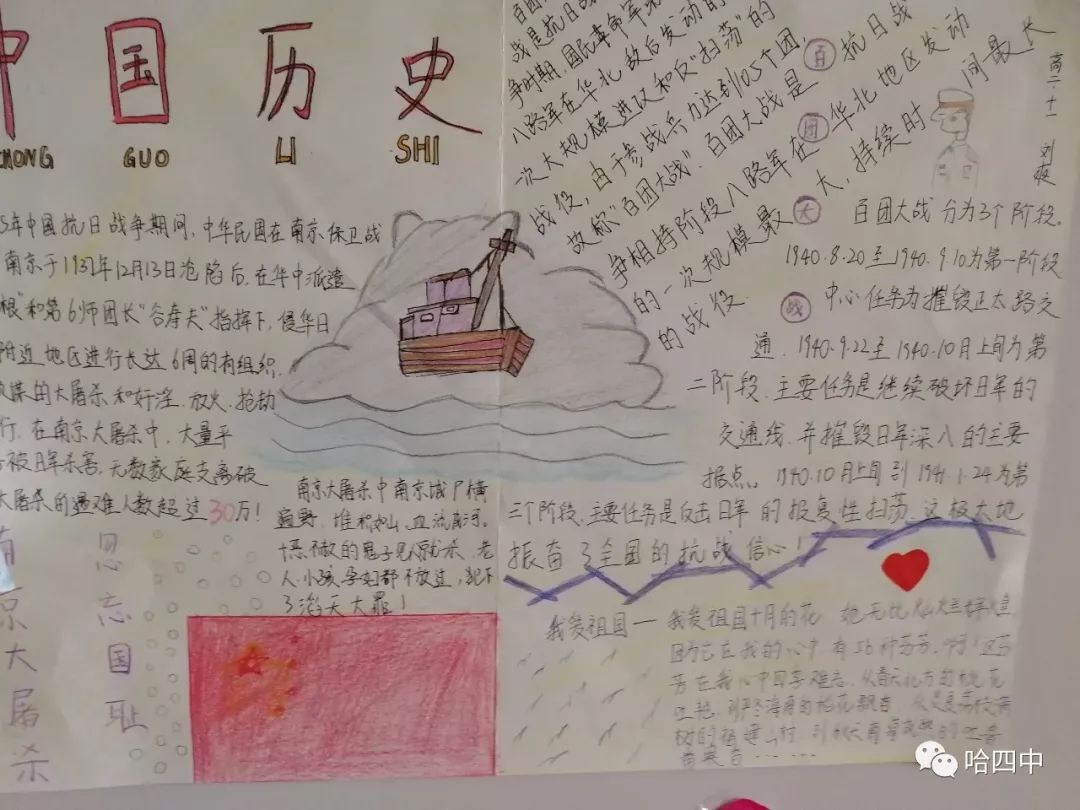 中国历史
ZHONG GUO LI SHI
5年中国抗日战争期间,中华民国在南京保卫战
南京于1937年12月13日沦陷后,在华中派遣
根"和第6师团长"谷寿夫"指挥下,侵华日
附近地区进行长达6周的有组织、
谋的大屠杀和奸淫、放火、抢劫
行.在南京大屠杀中,大量平
被日军杀害,无数家庭支离破
大屠杀的遇难人数超过30万!
南京大屠杀
勿忘国耻
南京大屠杀中南京城尸横
遍野,堆积如山,血流成河。
的鬼子见人就杀,老
人小孩孕妇都不放过,犯下
了滔天大罪!
战是抗日战
争时期,国民革命军第
八路军在华北敌后发动的
一次大规模进攻和反"扫荡"的
战役,由于参战兵力达到105个团,
故称"百团大战".百团大战是抗日战
争相持阶段八路军在华北地区发动
的一次规模最大,持续时间最长
的战役.
百团大战
高二·十一 刘
百团大战分为3个阶段.
1940.8.20至1940.9.10为第一阶段
中心任务为摧毁正太路交
通.1940.9.22至1940.10月上旬为第
二阶段.主要任务是继续破坏日军的
交通线.并摧毁日军深入的主要
据点。1940.10月上旬到1941.1.24为第
三个阶段,主要任务是反击日军的报复性扫荡.这极大地
振奋了全国的抗战信心!
我爱祖国一 我爱祖国十月的花 她无比灿烂鲜
在我的心中有56种芬芳.
在我心中四季难忘.从春天北方的桃花
哈四中